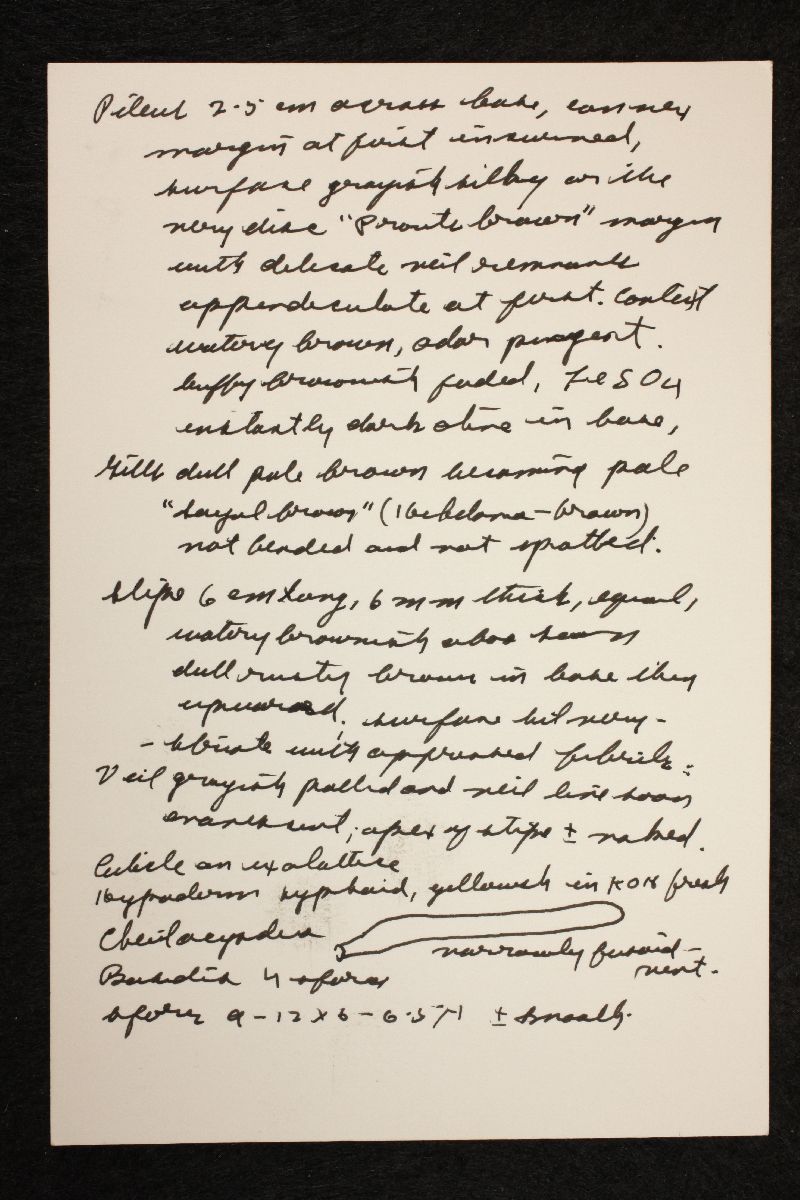 Pileus 2-5 cm across base, convex
margin at first incurved,
surface grayish silky over the
very disc "Prout's brown" margin
with delicate veil remnants
appendiculate at first. Context
watery brown, odor pungent.
buffy brownish faded, FeSO4
instantly dark olive in base,
Gills dull pale brown becoming pale
"sayal brown" (Hebeloma-brown)
not beaded and not spotted.
Stipe 6 cm long, 6 mm thick, equal,
watery brownish above soon
dull rusty brown in base then
upward, surface silvery-
-striate with appressed fibrils.
Veil grayish pallid and veil line soon
evanescent, apex of stipe ± naked.
Cuticle an ixolattice
Hypoderm hyphoid, yellowish in KOH fresh
Cheilocystidia
narrowly fusoid-
vent.
Basidia 4 spored
spores 9-12 x 6-6.5 μ ± smooth.